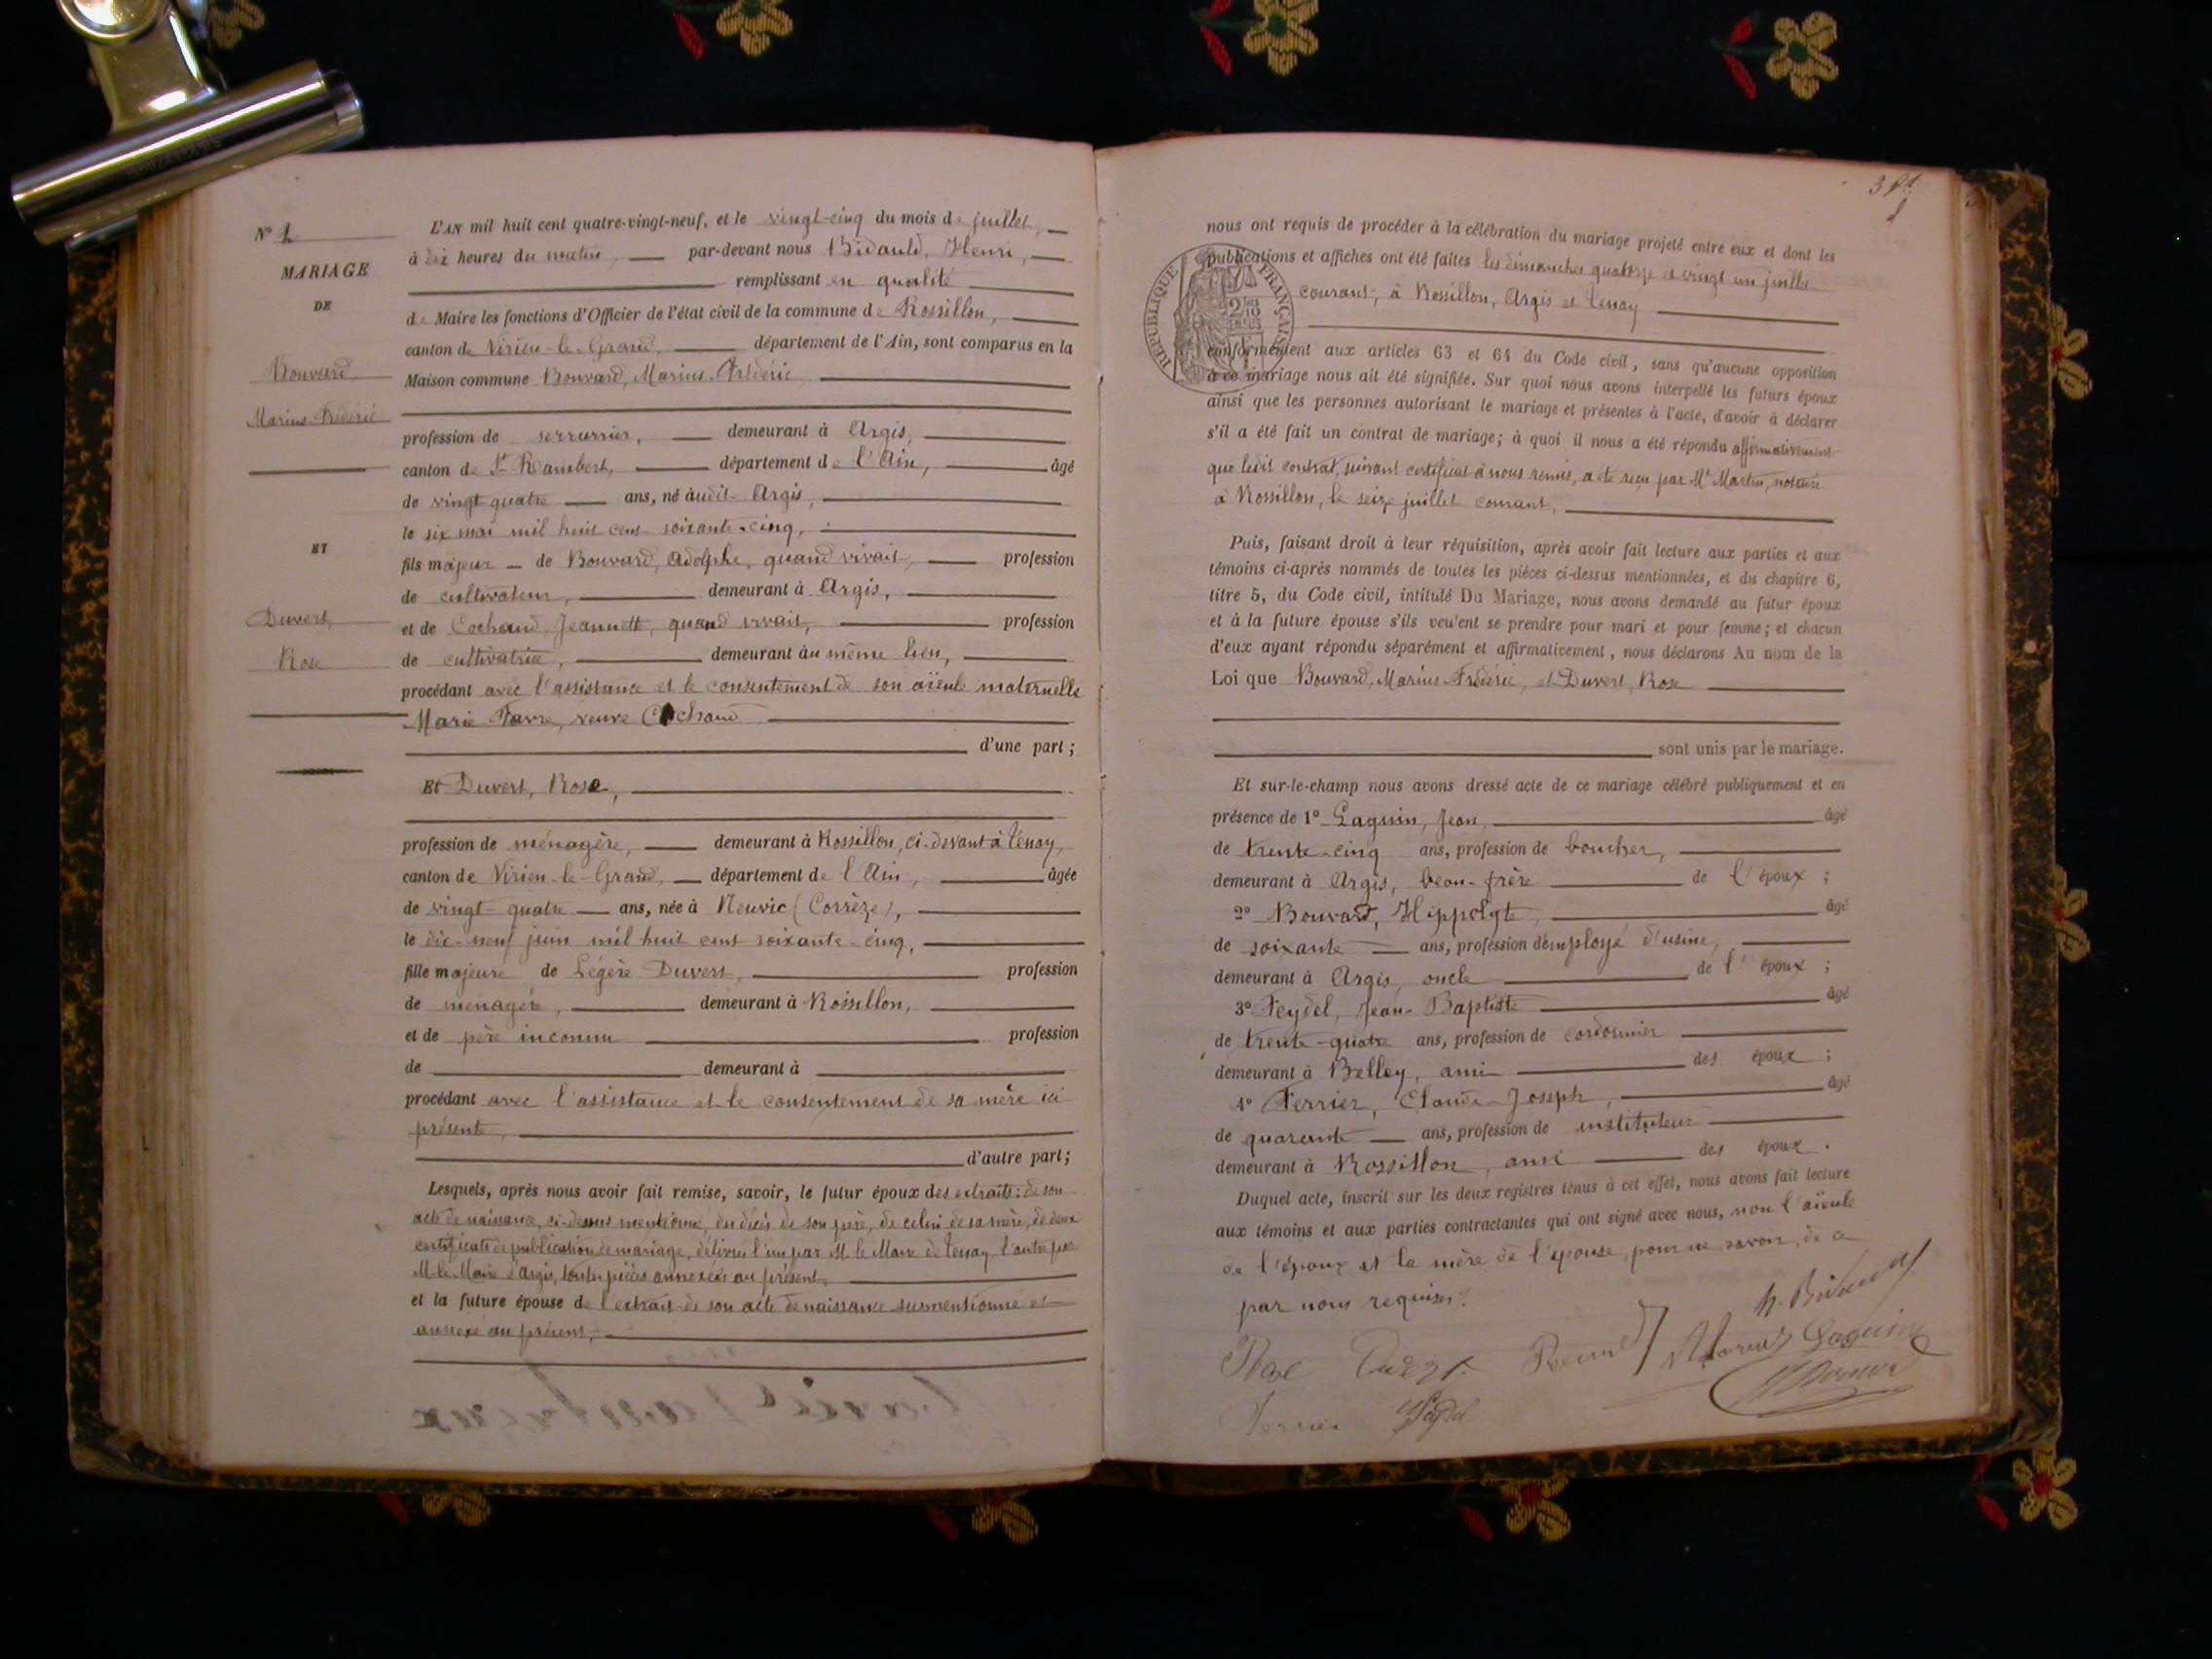 N° 1
MARIAGE
DE
Bouvard
Marius-Frédéric
ET
Duvert,
Rose
L'AN mil huit cent quatre-vingt-neuf, et le vingt-cinq du mois de juillet,
à dix heures du matin, par-devant nous Bidauld, Henri,
remplissant en qualité
de Maire les fonctions d'Officier de l'état civil de la commune de Rossillon,
canton de Virieu-le-Grand, département de l'Ain, sont comparus en la
Maison commune Bouvard, Marius-Frédéric
profession de serrurier, demeurant à Argis,
canton de St Rambert, département de l'Ain, âgé
de vingt quatre ans, né audit Argis,
le six mai mil huit cent soixante-cinq,
fils majeur de Bouvard, Adolphe, quand vivait, profession
de cultivateur, demeurant à Argis,
et de Cochaud, Jeannette, quand vivait, profession
de cultivatrice, demeurant au même lieu,
procédant avec l'assistance et le consentement de son aïeule maternelle
Marie Favre, veuve Cochaud
d'une part;
Et Duvert, Rose,
profession de ménagère, demeurant à Rossillon, ci-devant à Tenay,
canton de Virieu-le-Grand, département de l'Ain, âgée
de vingt-quatre ans, née à Neuvic (Corrèze),
le dix-neuf juin mil huit cent soixante-cinq,
fille majeure de Légère Duvert, profession
de ménagère, demeurant à Rossillon,
et de père inconnu profession
de demeurant à
procédant avec l'assistance et le consentement de sa mère ici
présente,
d'autre part;
Lesquels, après nous avoir fait remise, savoir, le futur époux des extraits: de son
acte de naissance, ci-dessus mentionné, du décès de son père, de celui de sa mère, de deux
certificats de publication de mariage, délivrés l'un par M. le Maire de Tenay, l'autre par
M. le Maire d'Argis, toutes pièces annexées au présent,
et la future épouse de l'extrait de son acte de naissance susmentionné et
annexé au présent,
nous ont requis de procéder à la célébration du mariage projeté entre eux et dont les
publications et affiches ont été faites les dimanches quatorze et vingt un juillet
courant, à Rossillon, Argis et Tenay
RÉPUBLIQUE FRANÇAISE
conformément aux articles 63 et 64 du Code civil, sans qu'aucune opposition
à ce mariage nous ait été signifiée. Sur quoi nous avons interpellé les futurs époux
ainsi que les personnes autorisant le mariage et présentes à l'acte, d'avoir à déclarer
s'il a été fait un contrat de mariage; à quoi il nous a été répondu affirmativement
que ledit contrat, suivant certificat à nous remis, a été reçu par Me Martin, notaire
à Rossillon, le seize juillet courant,
Puis, faisant droit à leur réquisition, après avoir fait lecture aux parties et aux
témoins ci-après nommés de toutes les pièces ci-dessus mentionnées, et du chapitre 6,
titre 5, du Code civil, intitulé Du Mariage, nous avons demandé au futur époux
et à la future épouse s'ils veulent se prendre pour mari et pour femme; et chacun
d'eux ayant répondu séparément et affirmativement, nous déclarons Au nom de la
Loi que Bouvard, Marius-Frédéric, et Duvert, Rose
sont unis par le mariage.
Et sur-le-champ nous avons dressé acte de ce mariage célébré publiquement et en
présence de 1° Laguin, Jean, âgé
de trente-cinq ans, profession de boucher,
demeurant à Argis, beau-frère de l'époux;
2° Bouvard, Hippolyte, âgé
de soixante ans, profession d'employé d'usine,
demeurant à Argis, oncle de l'époux;
3° Feydel, Jean-Baptiste âgé
de trente-quatre ans, profession de cordonnier
demeurant à Belley, ami des époux;
4° Ferrier, Claude-Joseph, âgé
de quarante ans, profession de instituteur
demeurant à Rossillon, ami des époux.
Duquel acte, inscrit sur les deux registres tenus à cet effet, nous avons fait lecture
aux témoins et aux parties contractantes qui ont signé avec nous, non l'aïeule
de l'époux et la mère de l'épouse, pour ne savoir, de ce
par nous requises.
H. Bidauld
Rose Duvert
Laguin
Ferrier Feydel